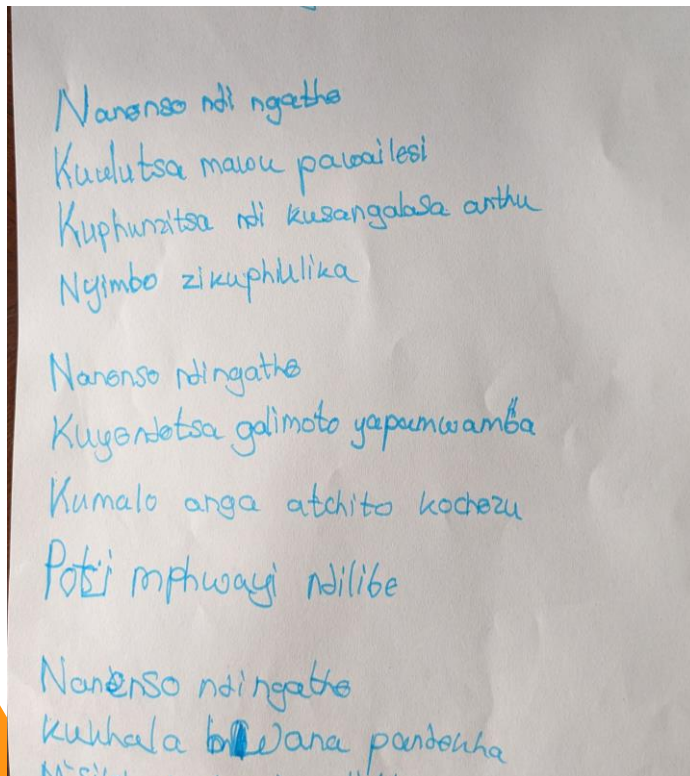 Nanenso ndi ngathe
Kuulutsa mawu pawailesi
Kuphunzitsa ndi kusangalasa anthu
Nyimbo zikuphulika
Nanenso ndingathe
Kuyendetsa galimoto yapamwamba
Kumalo anga atchito kochezu
Poti mphwayi ndilibe
Nanenso ndingathe
Kukhala bwana pandekha